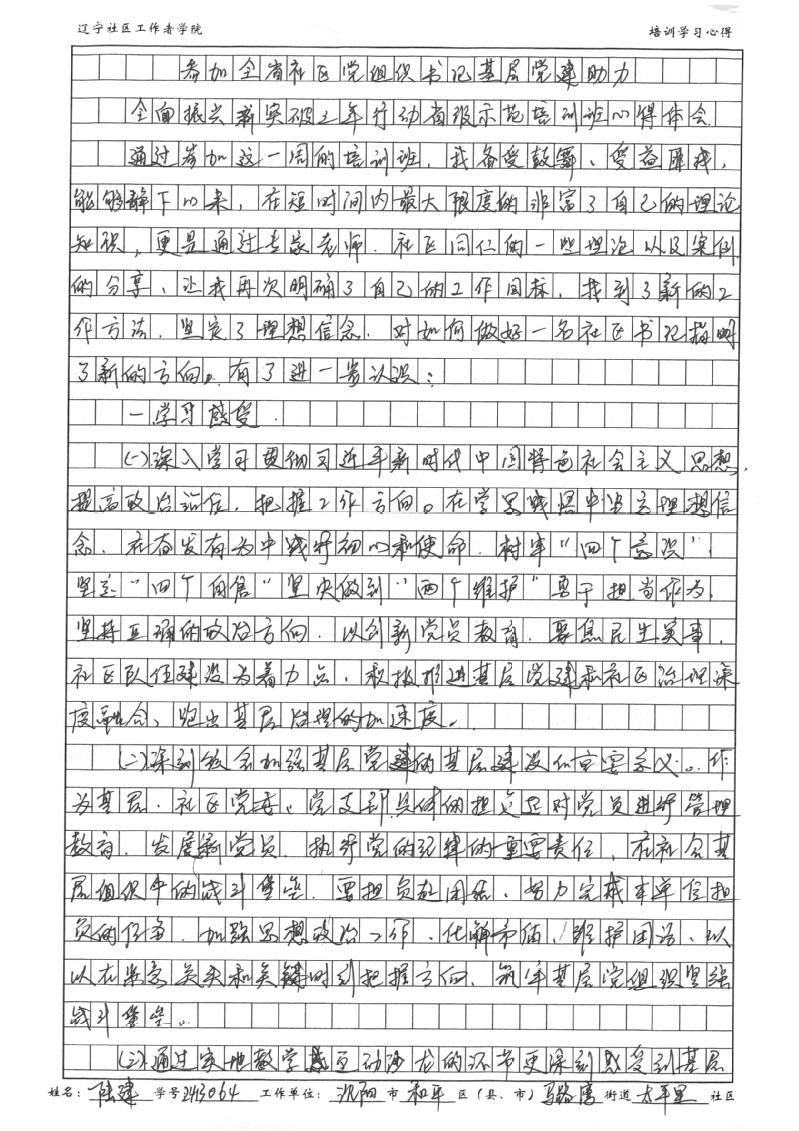 辽宁社区工作者学院
培训学习心得
参加全省社区党组织书记基层党建助力
全面振兴新突破三年行动省级示范培训班心得体会
通过参加这一周的培训班，我备受鼓舞、受益匪浅，
能够静下心来，在短时间内最大限度的丰富了自己的理论
知识，更是通过专家老师、社区同仁的一些理论以及案例
的分享、让我再次明确了自己的工作目标，找到了新的工
作方法，坚定了理想信念，对如何做好一名社区书记指明
了新的方向。有了进一步认识：
一学习感受
（一）深入学习贯彻习近平新时代中国特色社会主义思想，
提高政治站位，把握工作方向。在学思践悟中坚定理想信
念，在奋发有为中践行初心和使命，树牢“四个意识”
坚定“四个自信”坚决做到“两个维护”勇于担当作为，
坚持正确的政治方向，以创新党员教育，聚焦民生实事，
社区队伍建设为着力点，积极推进基层党建和社区治理深
度融合，跑出基层治理的加速度。
（二）深刻领会加强基层党建的基层建设的重要意义。作
为基层，社区党委、党支部具体的担负起对党员进行管理
教育，发展新党员，执行党的纪律的重要责任，在社会基
层组织中的战斗堡垒，要担负起团结、努力完成本单位担
负的任务，加强思想政治工作、化解矛盾、维护团结、以
以在紧急关头和关键时刻把握方向，筑牢基层党组织坚强
战斗堡垒。
（三）通过实地教学或互动沙龙的环节更深刻感受到基层
姓名：陆建 学号243064 工作单位：沈阳市和平区（县、市）马路湾街道太平里社区